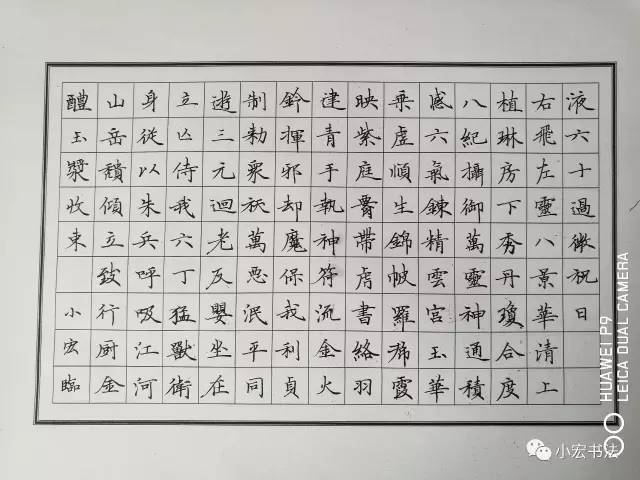 液六十過微祝曰
右飛左靈八景華清上
植琳房下秀丹瓊合度
八紀攝御萬靈神通積
感六氣鍊精雲宮玉華
乘虛順生錦帔羅霞
映紫庭腰帶虎書絡羽
建青手執神符流金火
鈴揮邪却魔保我利貞
制勑眾祅萬惡泯平同
遊三元迴老反嬰坐在
立亡侍我六丁猛獸衛
身從以朱兵呼吸江河
山岳積傾立致行厨金
醴玉漿收束
小宏臨
HUAWEI P9
LEICA DUAL CAMERA
小宏书法